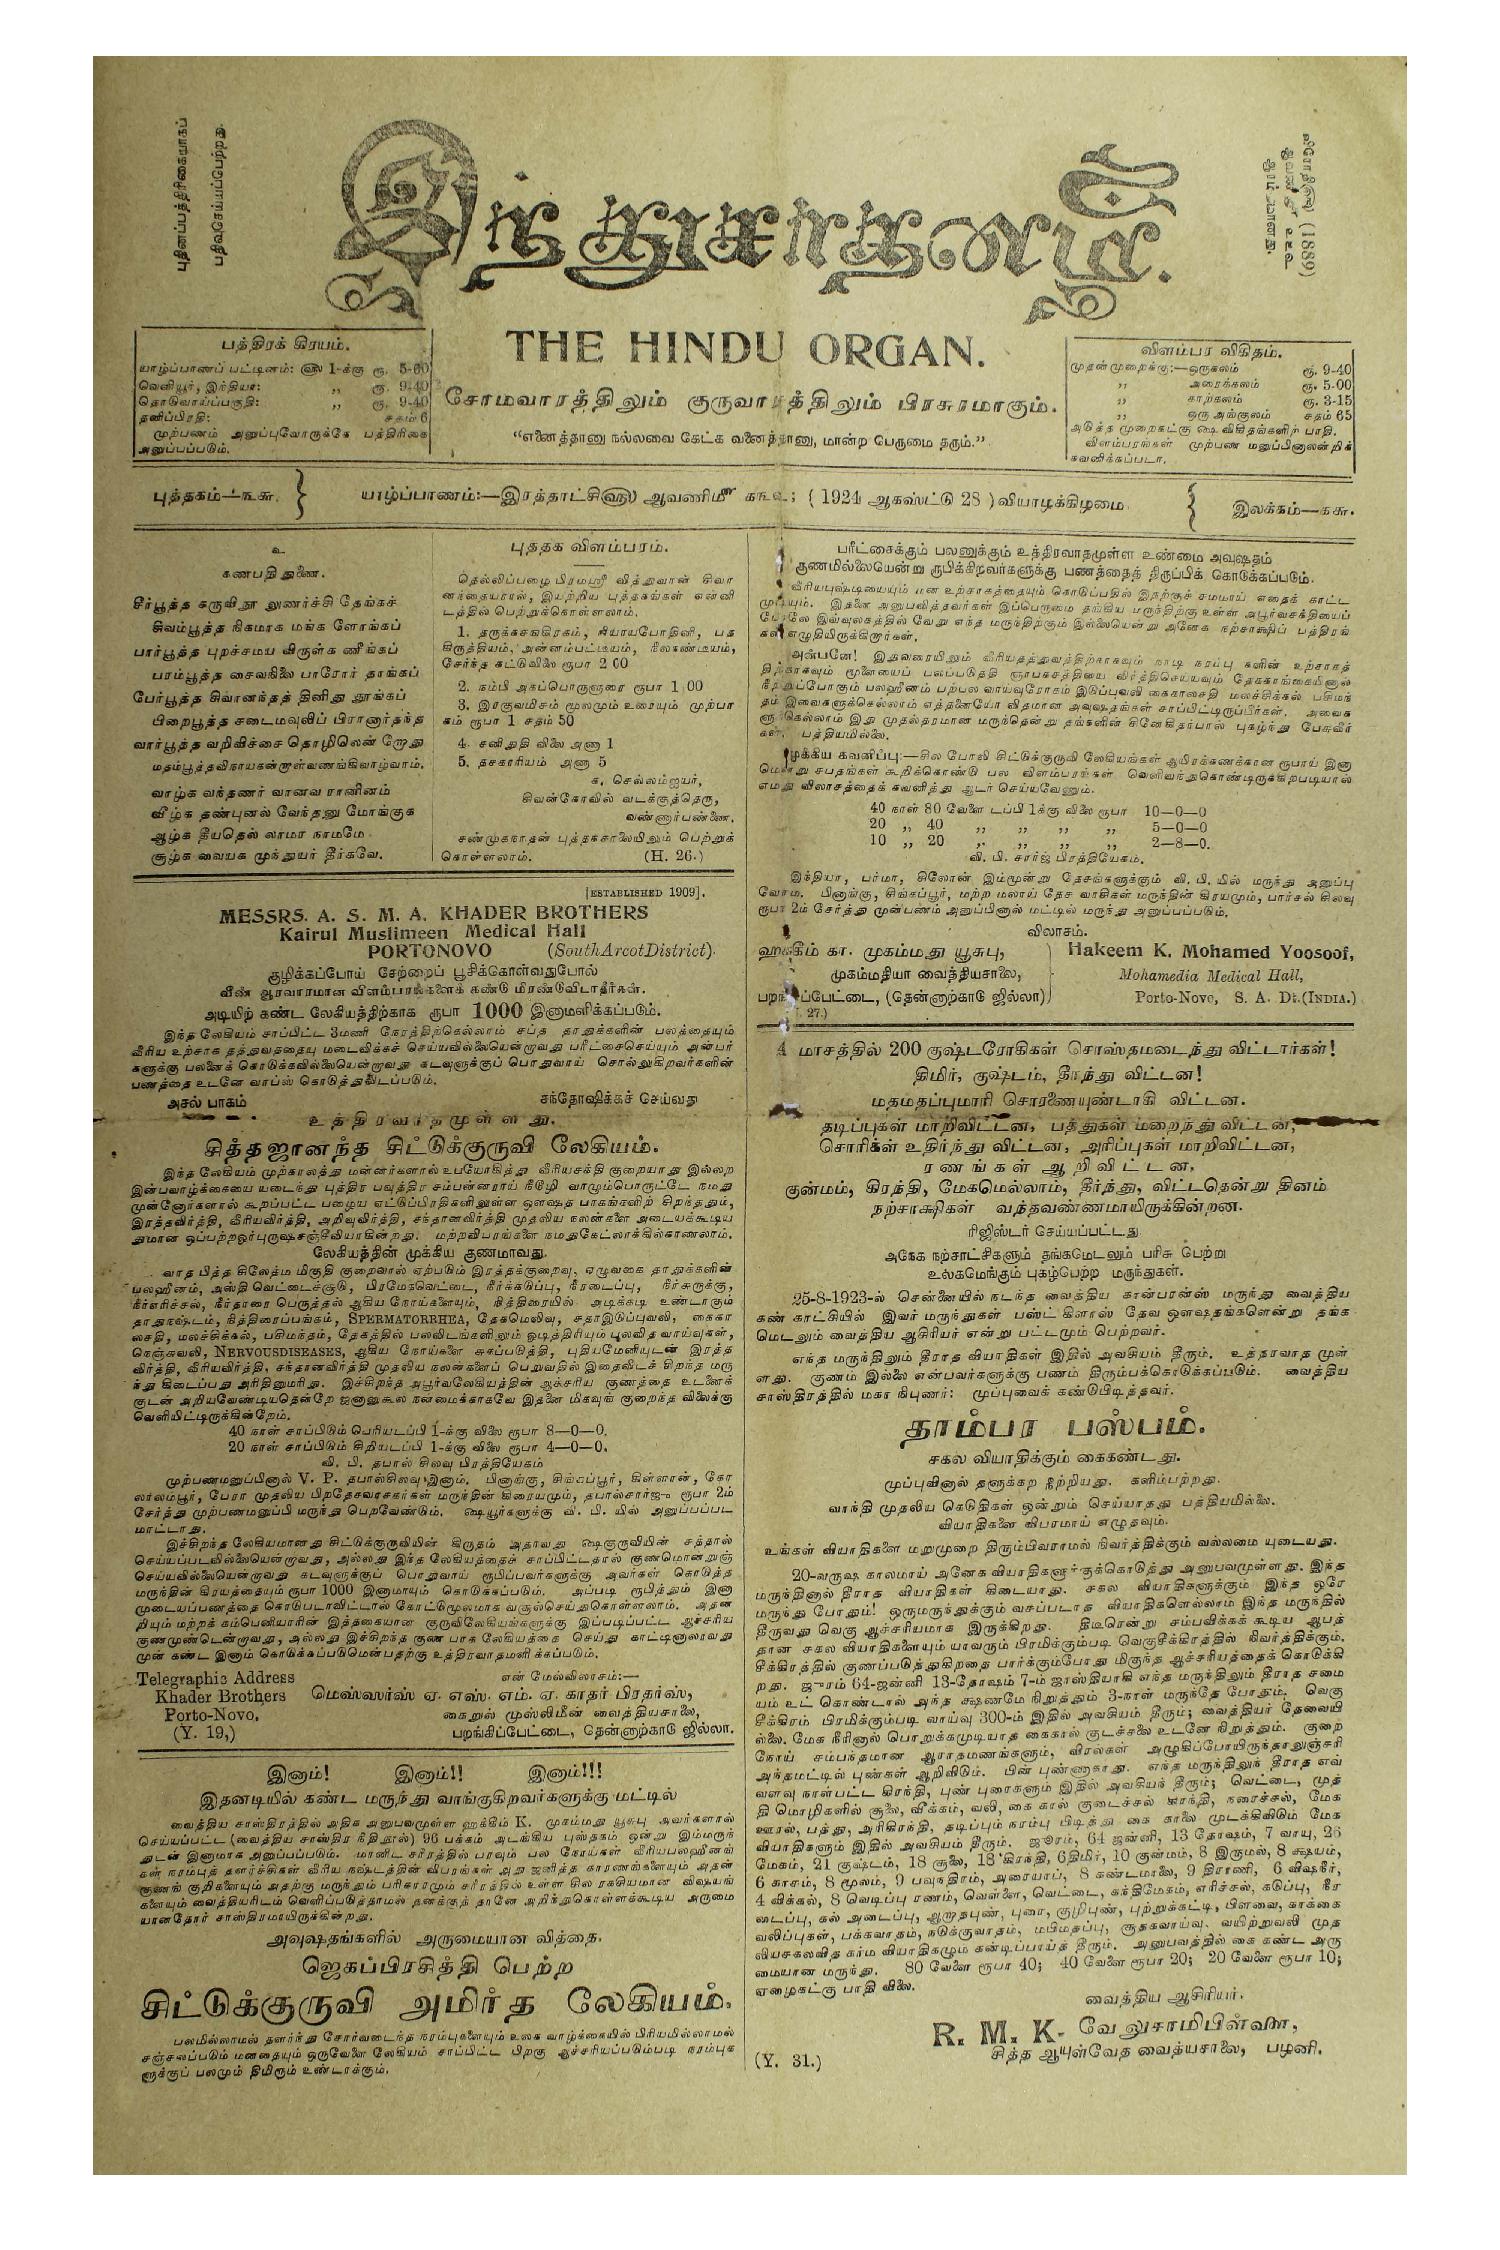 புதினப்பத்திரிகையாகப்
பதிவுசெய்யப்பெற்றது.
இந்துசாதனம்.
(1889)
THE HINDU ORGAN.
சோமவாரத்திலும் குருவாரத்திலும் பிரசுரமாகும்.
“எனைத்தானு நல்லவை கேட்க வனைத்தானு, மான்ற பெருமை தரும்.”
பத்திரக் கிரயம்.
யாழ்ப்பாணப் பட்டினம்: ௵ 1-க்கு ரூ. 5-00
வெளியூர், இந்தியா: ,, ரூ. 9-40
தொடுவாய்ப்பகுதி: ,, ரூ. 9-40
தனிப்பிரதி: சதம் 6
முற்பணம் அனுப்புவோருக்கே பத்திரிகை
அனுப்பப்படும்.
விளம்பர விகிதம்.
முதன்முறைக்கு:—ஒருகலம் ரூ. 9-40
,, அரைக்கலம் ரூ. 5-00
,, காற்கலம் ரூ. 3-15
,, ஒரு அங்குலம் சதம் 65
அடுத்த முறைகட்கு ௸ விகிதங்களிற் பாதி.
விளம்பரங்கள் முற்பண மனுப்பினாலன்றிக்
கவனிக்கப்படா.
புத்தகம்—௩௬.
யாழ்ப்பாணம்:—இரத்தாட்சி௵ ஆவணி௴ ௧௩௨; ( 1924 ஆகஸ்ட்டு 28 ) வியாழக்கிழமை
இலக்கம்—௧௬.
உ
கணபதி துணை.
சீர்பூத்த கருவிநூ லுணர்ச்சி தேங்கச்
சிவம்பூத்த நிகமாக மங்க ளோங்கப்
பார்பூத்த புறச்சமய விருள்க ணீங்கப்
பரம்பூத்த சைவநிலை பாரோர் தாங்கப்
பேர்பூத்த சிவானந்தத் தினிது தூங்கப்
பிறைபூத்த சடைமவுலிப் பிரானார்தந்த
வார்பூத்த வறிவிச்சை தொழிலென் றோது
மதம்பூத்தவிநாயகன்றாள்வணங்கிவாழ்வாம்.
வாழ்க வந்தணர் வானவ ரானினம்
வீழ்க தண்புனல் வேந்தனு மோங்குக
ஆழ்க தீயதெல் லாமர நாமமே
சூழ்க வையக முந்துயர் தீர்கவே.
புத்தக விளம்பரம்.
தெல்லிப்பழை பிரமஸ்ரீ வித்துவான் சிவா
னந்தையரால், இயற்றிய புத்தகங்கள் என்னி
டத்தில் பெற்றுக்கொள்ளலாம்.
1. தருக்கசங்கிரகம், நியாயபோதினி, பத
கிருத்தியம், அன்னம்பட்டீயம், நீலகண்டீயம்,
சேர்ந்த கட்டுவிலை ரூபா 2 00
2. நம்பி அகப்பொருளுரை ரூபா 1 00
3. இரகுவமிசம் மூலமும் உரையும் முற்பா
கம் ரூபா 1 சதம் 50
4. சனிதுதி விலை அணா 1
5. தசகாரியம் அணா 5
க, செல்லம்ஐயர்,
சிவன்கோவில் வடக்குத்தெரு,
வண்ணார்பண்ணை.
சண்முகநாதன் புத்தகசாலையிலும் பெற்றுக்
கொள்ளலாம். (H. 26.)
[ESTABLISHED 1909].
MESSRS. A. S. M. A. KHADER BROTHERS
Kairul Muslimeen Medical Hall
PORTONOVO (SouthArcotDistrict).
குழிக்கப்போய் சேற்றைப் பூசிக்கொள்வதுபோல்
வீண் ஆரவாரமான விளம்பரங்களைக் கண்டு மிரண்டுவிடாதீர்கள்.
அடியிற் கண்ட லேகியத்திற்காக ரூபா 1000 இனாமளிக்கப்படும்.
இந்த லேகியம் சாப்பிட்ட 3மணி நேரத்திற்கெல்லாம் சப்த தாதுக்களின் பலத்தையும்
வீரிய உற்சாக தத்துவத்தையு மடைவிக்கச் செய்யவில்லையென்றாவது பரீட்சைசெய்யும் அன்பர்
களுக்கு பலனைக் கொடுக்கவில்லையென்றாவது கடவுளுக்குப் பொதுவாய் சொல்லுகிறவர்களின்
பணத்தை உடனே வாப்ஸ் கொடுத்துவிடப்படும்.
அசல் பாகம் சந்தோஷிக்கச் செய்வது
உத்திரவாதமுள்ளது.
சித்தஜானந்த சிட்டுக்குருவி லேகியம்.
இந்த லேகியம் முற்காலத்து மன்னர்களால் உபயோகித்து வீரியசக்தி குறையாது இல்லற
இன்பவாழ்க்கையை யடைந்து புத்திர பவுத்திர சம்பன்னராய் நீடூழி வாழும்பொருட்டே நமது
முன்னோர்களால் கூறப்பட்ட பழைய ஏட்டுப்பிரதிகளிலுள்ள ஔஷத பாகங்களிற் சிறந்ததும்,
இரத்தவிர்த்தி, வீரியவிர்த்தி, அறிவுவிர்த்தி, சந்தானவிர்த்தி முதலிய நலன்களை அடையக்கூடிய
துமான ஒப்பற்றஓர்புருஷசஞ்சீவியாகின்றது. மற்றவிபரங்களை நமதுகேட்லாக்கில்காணலாம்.
லேகியத்தின் முக்கிய குணமாவது.
வாத பித்த சிலேத்ம மிகுதி குறைவால் ஏற்படும் இரத்தக்குறைவு, எழுவகை தாதுக்களின்
பலஹீனம், அஸ்தி வெட்டைச்சூடு, பிரமேகவெட்டை, நீர்க்கடுப்பு, நீரடைப்பு, நீர்சுருக்கு,
நீர்எரிச்சல், நீர்தாரை பெருத்தல் ஆகிய நோய்களையும், நித்திரையில் அடிக்கடி உண்டாகும்
தாதுநஷ்டம், நித்திரைப்பங்கம், SPERMATORRHEA, தேகமெலிவு, சதாஇடுப்புவலி, கைகா
லசதி, மலச்சிக்கல், பசிமந்தம், தேகத்தில் பலவிடங்களிலும் ஓடித்திரியும் பலவித வாய்வுகள்,
நெஞ்சுவலி, NERVOUSDISEASES, ஆகிய நோய்களை சுகப்படுத்தி, புதியமேனியுடன் இரத்த
விர்த்தி, வீரியவிர்த்தி, சந்தானவிர்த்தி முதலிய நலன்களைப் பெறுவதில் இதைவிடச் சிறந்த மரு
ந்து கிடைப்பது அரிதினுமரிது. இச்சிறந்த அபூர்வலேகியத்தின் ஆச்சரிய குணத்தை உடனுக்
குடன் அறியவேண்டியதென்றே ஜனானுகூல நன்மைக்காகவே இதனை மிகவுங் குறைந்த விலைக்கு
வெளியிட்டிருக்கின்றேம்.
40 நாள் சாப்பிடும் பெரியடப்பி 1-க்கு விலை ரூபா 8—0—0.
20 நாள் சாப்பிடும் சிறியடப்பி 1-க்கு விலை ரூபா 4—0—0.
வி. பி. தபால் சிலவு பிரத்தியேகம்
முற்பணமனுப்பினால் V. P. தபால்சிலவு இனாம். பினாங்கு, சிங்கப்பூர், கிள்ளான், கோ
லாலம்பூர், பேரா முதலிய பிறதேசவாசகர்கள் மருந்தின் கிரையமும், தபால்சார்ஜு ரூபா 2ம்
சேர்த்து முற்பணமனுப்பி மருந்து பெறவேண்டும். ௸யூர்களுக்கு வி. பி. யில் அனுப்பப்பட
மாட்டாது.
இச்சிறந்த லேகியமானது சிட்டுக்குருவியின் கிருதம் அதாவது ௸குருவியின் சத்தால்
செய்யப்படவில்லையென்றாவது, அல்லது இந்த லேகியத்தைச் சாப்பிட்டதால் குணமொன்றுஞ்
செய்யவில்லையென்றாவது கடவுளுக்குப் பொதுவாய் ரூபிப்பவர்களுக்கு அவர்கள் கொடுத்த
மருந்தின் கிரயத்தையும் ரூபா 1000 இனாமாயும் கொடுக்கப்படும். அப்படி ரூபித்தும் இனா
முடையப்பணத்தை கொடுபடாவிட்டால் கோர்ட்மூலமாக வசூல்செய்துகொள்ளலாம். அதன
றியும் மற்றக் கம்பெனியாரின் இத்தகையான குருவிலேகியங்களுக்கு இப்படிப்பட்ட ஆச்சரிய
குணமுண்டென்றாவது, அல்லது இச்சிறந்த குண பாக லேகியத்தை செய்து காட்டினாலாவது
முன் கண்ட இனாம் கொடுக்கப்படுமென்பதற்கு உத்திரவாதமளிக்கப்படும்.
Telegraphic Address என் மேல்விலாசம்:—
Khader Brothers மெஸ்ஸர்ஸ் ஏ. எஸ். எம். ஏ. காதர் பிரதர்ஸ்,
Porto-Novo. கைறுல் முஸ்லிமீன் வைத்தியசாலை,
(Y. 19,) பறங்கிப்பேட்டை, தென்னாற்காடு ஜில்லா.
இனாம்! இனாம்!! இனாம்!!!
இதனடியில் கண்ட மருந்து வாங்குகிறவர்களுக்கு மட்டில்
வைத்திய சாஸ்திரத்தில் அதிக அனுபவமுள்ள ஹக்கீம் K. முகம்மது யூசுபு அவர்களால்
செய்யப்பட்ட (வைத்திய சாஸ்திர நீதிநூல்) 96 பக்கம் அடங்கிய புஸ்தகம் ஒன்று இம்மருந்
துடன் இனாமாக அனுப்பப்படும். மானிட சரீரத்தில் பரவும் பல நோய்கள் வீரியபலஹீனங்
கள் நரம்புத் தளர்ச்சிகள் வீரிய நஷ்டத்தின் விபரங்கள் அது ஜனித்த காரணங்களையும் அதன்
குணங் குறிகளையும் அதற்கு மருந்தும் பரிகாரமும் சரீரத்தில் உள்ள சில ரகசியமான விஷயங்
களையும் வைத்தியரிடம் வெளிப்படுத்தாமல் தனக்குத் தானே அறிந்துகொள்ளக்கூடிய அருமை
யானதோர் சாஸ்திரமாயிருக்கின்றது.
அவுஷதங்களில் அருமையான வித்தை.
ஜெகப்பிரசித்தி பெற்ற
சிட்டுக்குருவி அமிர்த லேகியம்.
பலமில்லாமல் தளர்ந்து சோர்வடைந்த நரம்புகளையும் உலக வாழ்க்கையில் பிரியமில்லாமல்
சஞ்சலப்படும் மனதையும் ஒருவேளை லேகியம் சாப்பிட்ட பிறகு ஆச்சரியப்படும்படி நரம்புக
ளுக்குப் பலமும் திமிரும் உண்டாக்கும்.
பரீட்சைக்கும் பலனுக்கும் உத்திரவாதமுள்ள உண்மை அவுஷதம்
குணமில்லையென்று ரூபிக்கிறவர்களுக்கு பணத்தைத் திருப்பிக் கொடுக்கப்படும்.
வீரியபுஷ்டியையும் மன உற்சாகத்தையும் கொடுப்பதில் இதற்குச் சமமாய் எதைக் காட்ட
முடியும். இதனை அனுபவித்தவர்கள் இப்பெருமை தங்கிய மருந்திற்கு உள்ள அபூர்வசக்தியைப்
போலே இவ்வுலகத்தில் வேறு எந்த மருந்திற்கும் இல்லையென்று அனேக நற்சாக்ஷிப் பத்திரங்
கள் எழுதியிருக்கிறார்கள்.
அன்பனே! இதுவரையிலும் வீரியதத்துவத்திற்காகவும் நாடி நரப்பு களின் உற்சாகத்
திற்காகவும் மூளையைப் பலப்படுத்தி ஞாபகசத்தியை விர்த்திசெய்யவும் தேககாங்கையினால்
நீர்த்துப்போகும் பலஹீனம் பற்பல வாய்வுரோகம் இடுப்புவலி கைகாலசதி மலச்சிக்கல் பசிமந்
தம் இவைகளுக்கெல்லாம் எத்தனையோ விதமான அவுஷதங்கள் சாப்பிட்டிருப்பீர்கள். அவைக
ளுக்கெல்லாம் இது முதல்தரமான மருந்தென்று தங்களின் சினேகிதர்பால் புகழ்ந்து பேசுவீர்
கள். பத்தியமில்லை.
முக்கிய கவனிப்பு:—சில போலி சிட்டுக்குருவி லேகியங்கள் ஆயிரக்கணக்கான ரூபாய் இனா
மென்று சபதங்கள் கூறிக்கொண்டு பல விளம்பரங்கள் வெளிவந்துகொண்டிருக்கிறபடியால்
எமது விலாசத்தைக் கவனித்து ஆடர் செய்யவேணும்.
40 நாள் 80 வேளை டப்பி 1க்கு விலை ரூபா 10—0—0
20 ,, 40 ,, ,, ,, ,, 5—0—0
10 ,, 20 ,, ,, ,, ,, 2—8—0.
வி. பி. சார்ஜ் பிரத்தியேகம்.
இந்தியா, பர்மா, சிலோன் இம்மூன்று தேசங்களுக்கும் வி. பி. யில் மருந்து அனுப்பு
வோம். பினாங்கு, சிங்கப்பூர், மற்ற மலாய் தேச வாசிகள் மருந்தின் கிரயமும், பார்சல் சிலவு
ரூபா 2ம் சேர்த்து முன்பணம் அனுப்பினால் மட்டில் மருந்து அனுப்பப்படும்.
விலாசம்.
ஹக்கீம் கா. முகம்மது யூசுபு, Hakeem K. Mohamed Yoosoof,
முகம்மதியா வைத்தியசாலை, Mohamedia Medical Hall,
பறங்கிப்பேட்டை, (தென்னாற்காடு ஜில்லா) Porto-Novo, S. A. Dt.(INDIA.)
27.)
4 மாசத்தில் 200 குஷ்டரோகிகள் சொஸ்தமடைந்து விட்டார்கள்!
திமிர், குஷ்டம், தீர்ந்து விட்டன!
மதமதப்புமாரி சொரணையுண்டாகி விட்டன.
தடிப்புகள் மாறிவிட்டன, பத்துகள் மறைந்து விட்டன,
சொரிகள் உதிர்ந்து விட்டன, அரிப்புகள் மாறிவிட்டன,
ரணங்கள் ஆறிவிட்டன,
குன்மம், கிரந்தி, மேகமெல்லாம், தீர்ந்து, விட்டதென்று தினம்
நற்சாக்ஷிகள் வந்தவண்ணமாயிருக்கின்றன.
ரிஜிஸ்டர் செய்யப்பட்டது
அநேக நற்சாட்சிகளும் தங்கமெடலும் பரிசு பெற்று
உலகமெங்கும் புகழ்பெற்ற மருந்துகள்.
25-8-1923-ல் சென்னையில் நடந்த வைத்திய கான்பரன்ஸ் மருந்து வைத்திய
கண் காட்சியில் இவர் மருந்துகள் பஸ்ட் கிளாஸ் தேவ ஔஷதங்களென்று தங்க
மெடலும் வைத்திய ஆசிரியர் என்று பட்டமும் பெற்றவர்.
எந்த மருந்திலும் தீராத வியாதிகள் இதில் அவசியம் தீரும். உத்தரவாத முள்
ளது. குணம் இல்லை என்பவர்களுக்கு பணம் திரும்பக்கொடுக்கப்படும். வைத்திய
சாஸ்திரத்தில் மகா நிபுணர்: முப்புவைக் கண்டுபிடித்தவர்.
தாம்பர பஸ்பம்.
சகல வியாதிக்கும் கைகண்டது.
முப்புவினால் தளுக்கற நீற்றியது. களிம்பற்றது.
வாந்தி முதலிய கெடுதிகள் ஒன்றும் செய்யாதது பத்தியமில்லை.
வியாதிகளை விபரமாய் எழுதவும்.
உங்கள் வியாதிகளை மறுமுறை திரும்பிவராமல் நிவர்த்திக்கும் வல்லமை யுடையது.
20-வருஷ காலமாய் அனேக வியாதிகளுக்குக்கொடுத்து அனுபவமுள்ளது. இந்த
மருந்தினால் தீராத வியாதிகள் கிடையாது. சகல வியாதிகளுக்கும் இந்த ஒரே
மருந்து போதும்! ஒருமருந்துக்கும் வசப்படாத வியாதிகளெல்லாம் இந்த மருந்தில்
தீருவது வெகு ஆச்சரியமாக இருக்கிறது. திடீரென்று சம்பவிக்கக் கூடிய ஆபத்
தான சகல வியாதிகளையும் யாவரும் பிரமிக்கும்படி வெகுசீக்கிரத்தில் நிவர்த்திக்கும்.
சீக்கிரத்தில் குணப்படுத்துகிறதை பார்க்கும்போது மிகுந்த ஆச்சரியத்தைக் கொடுக்கி
றது. ஜுரம் 64-ஜன்னி 13-தோஷம் 7-ம் ஜாஸ்தியாகி எந்த மருந்திலும் தீராத சமை
யம் உட் கொண்டால் அந்த க்ஷணமே நிறுத்தும் 3-நாள் மருந்தே போதும். வெகு
சீக்கிரம் பிரமிக்கும்படி வாய்வு 300-ம் இதில் அவசியம் தீரும்; வைத்தியர் தேவையி
ல்லை. மேக நீரினால் பொறுக்கமுடியாத கைகால் குடச்சலை உடனே நிறுத்தும். குறை
நோய் சம்பந்தமான ஆராதமணங்களும், விரல்கள் அழுகிப்போயிருந்தாலுஞ்சரி
அந்தமட்டில் புண்கள் ஆறிவிடும். பின் புண்ணாகாது. எந்த மருந்திலுந் தீராத எவ்
வளவு நாள்பட்ட கிரந்தி, புண் புரைகளும் இதில் அவசியந் தீரும்; வெட்டை, முத்
தி மொழிகளில் சூலை, வீக்கம், வலி, கை கால் குடைச்சல் காந்தி, நரைச்சல், மேக
ஊரல், பத்து, அரிகிரந்தி, தடிப்பும் நரம்பு பிடித்து கை காலை முடக்கிவிடும் மேக
வியாதிகளும் இதில் அவசியம் தீரும். ஜுரம், 64 ஜன்னி, 13 தோஷம், 7 வாயு, 26
மேகம், 21 குஷ்டம், 18 சூலை, 18 கிரந்தி, 6திமிர், 10 குன்மம், 8 இருமல், 8 க்ஷயம்,
6 காசம், 8 மூலம், 9 பவுந்திரம், அரையாப், 8 கண்டமாலை, 9 திராணி, 6 விஷசுர்,
4 விக்கல், 8 வெடிப்பு ரணம், வெள்ளை, வெட்டை, சுந்திமேகம், எரிச்சல், கடுப்பு, நீர
டைப்பு, கல் அடைப்பு, ஆறாதபுண், புரை, குழிபுண், புற்றுக்கட்டி, பிளவை, காக்கை
வலிப்புகள், பக்கவாதம், நடுக்குவாதம், மயிமதப்பு, சூதகவாய்வு. வயிற்றுவலி முத
லியசகலவித கர்ம வியாதிகளும் கண்டிப்பாய்த் தீரும். அனுபவத்தில் கை கண்ட அரு
மையான மருந்து. 80 வேளை ரூபா 40; 40 வேளை ரூபா 20; 20 வேளை ரூபா 10;
ஏழைகட்கு பாதி விலை.
வைத்திய ஆசிரியர்.
R. M. K. வேலுசாமிபிள்ளை,
(Y. 31.) சித்த ஆயுள்வேத வைத்யசாலை, பழனி.